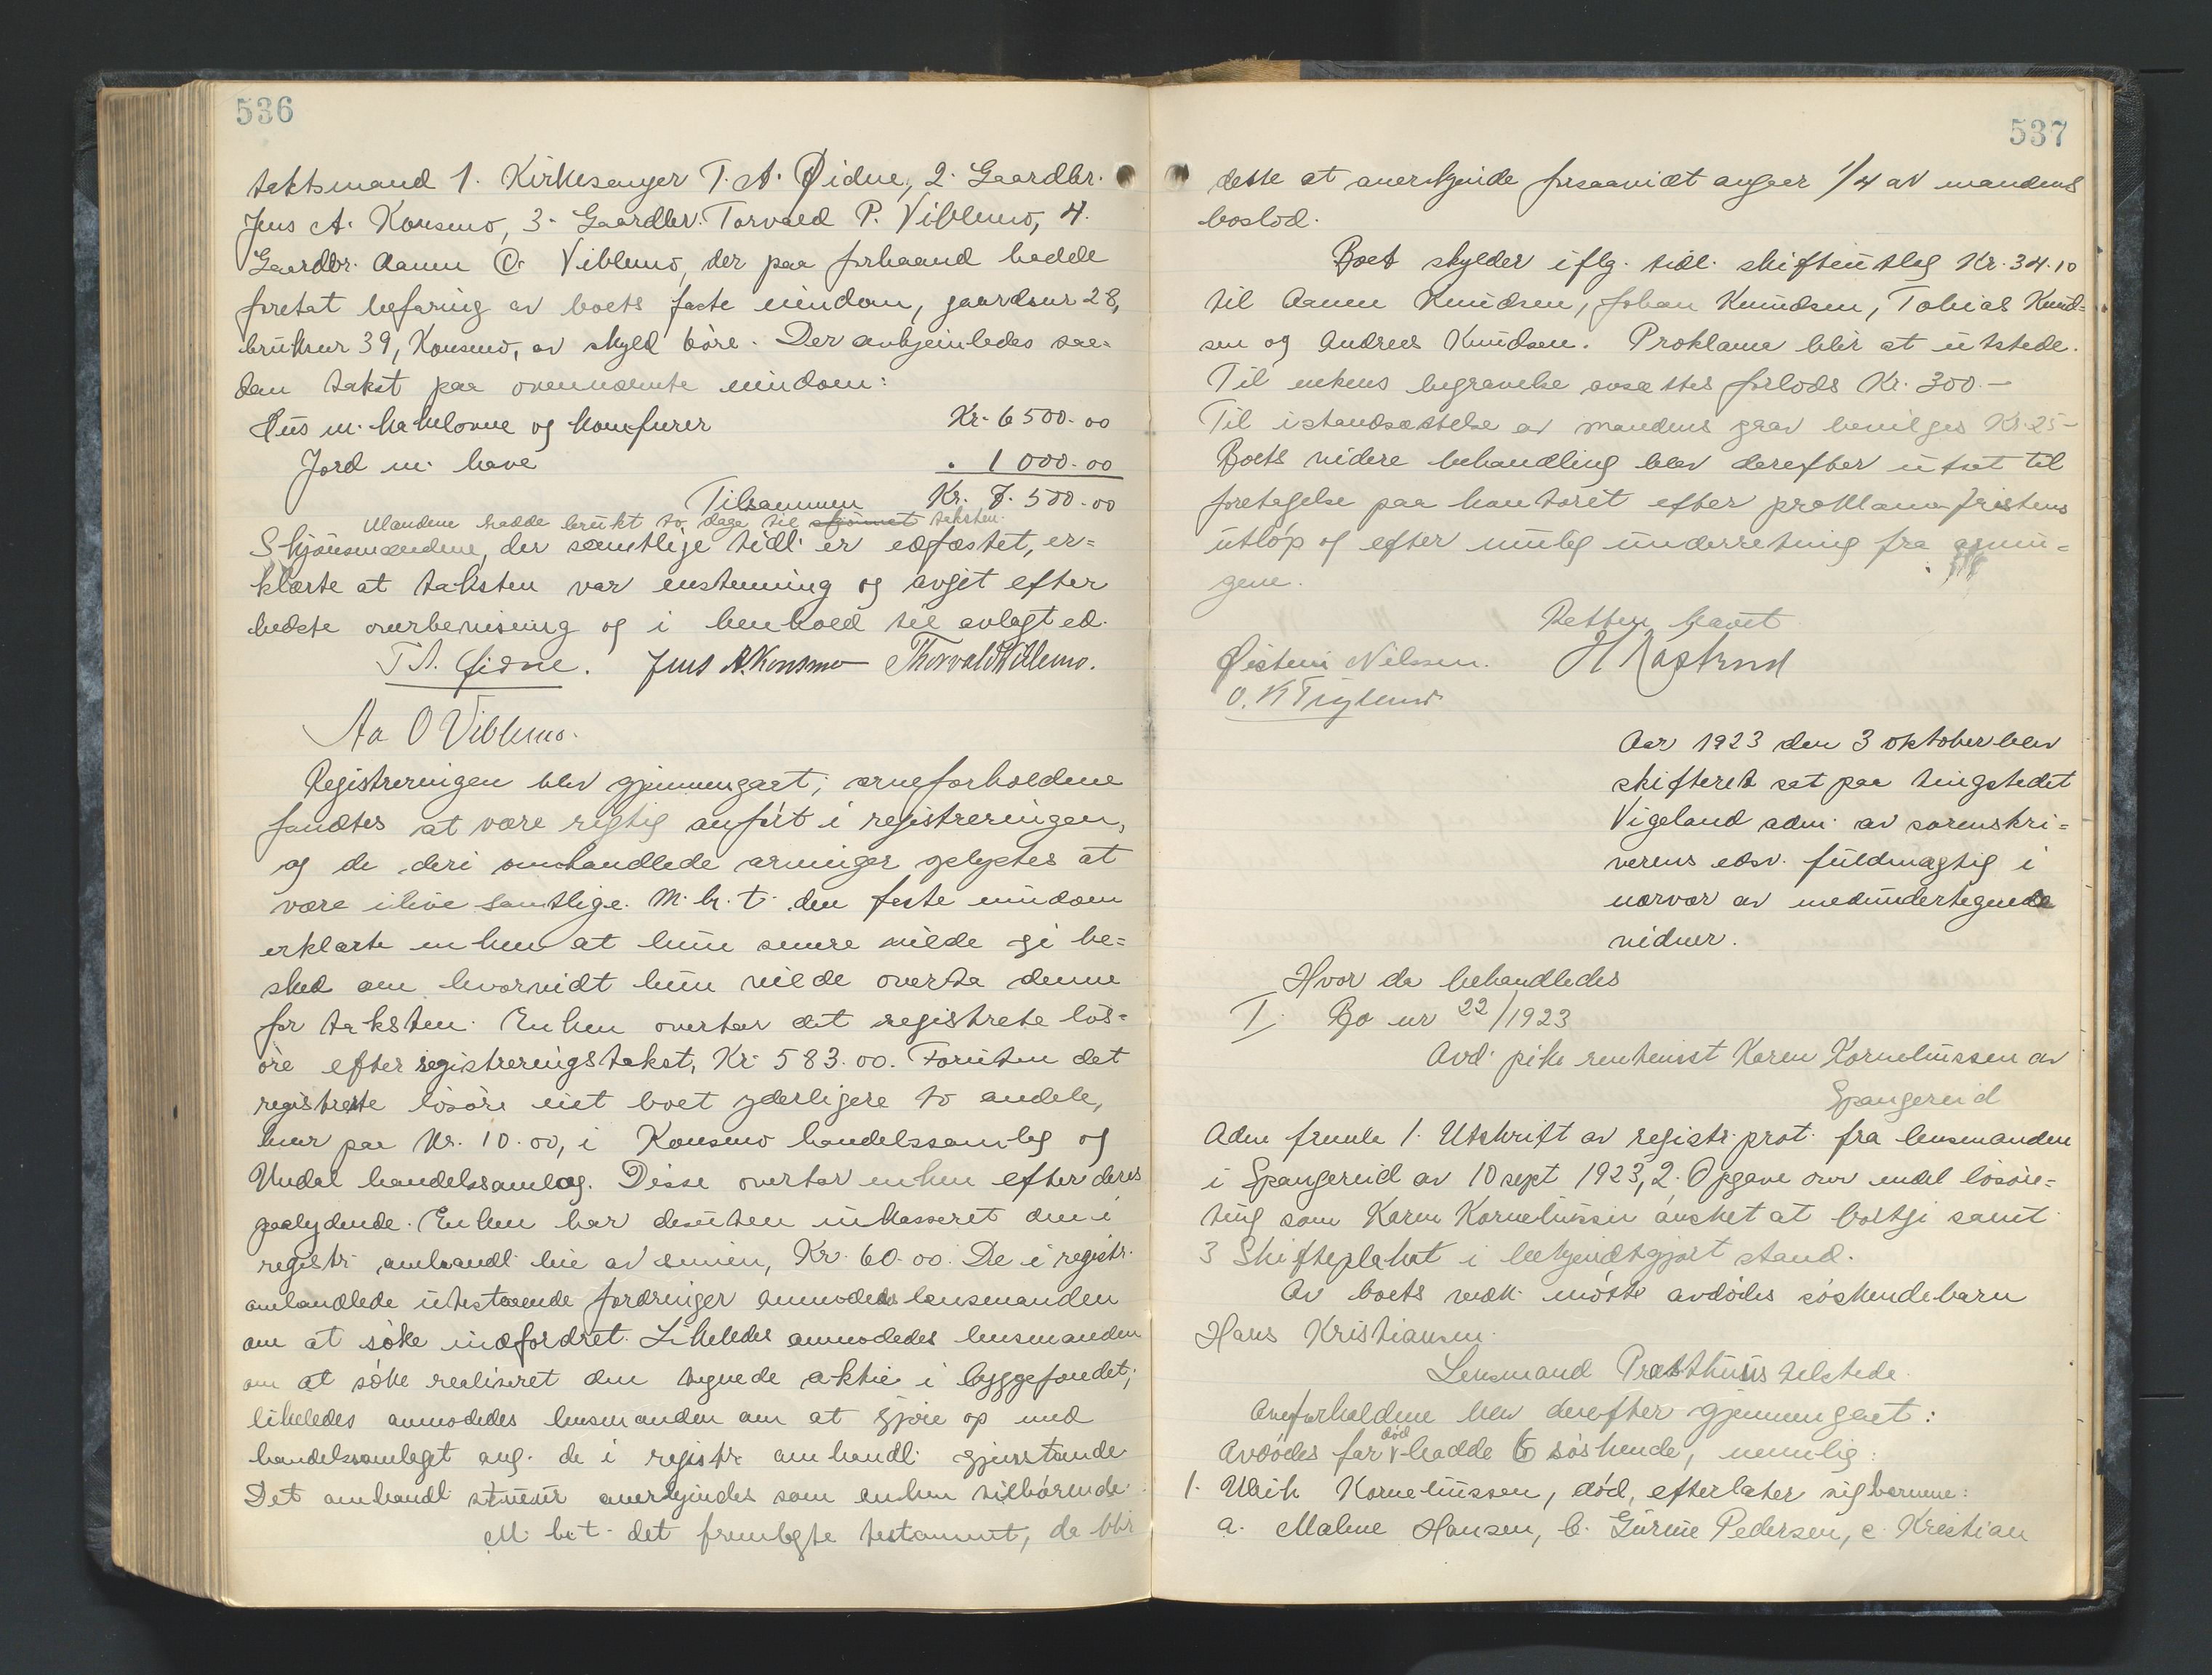 536
takstmand 1. Kirkesanger T. A. Øidne, 2. Gaardbr.
Jens A. Konsmo, 3. Gaardbr. Torvald P. Viblemo, 4.
Gaardbr. Aanen O. Viblemo, der paa forhaand hadde
foretat befaring av boets faste eiendom, gaardsnr 28,
bruksnr 39, Konsmo, av skyld 6 øre. Der avhjemledes saa-
dan takst paa ovennævnte eiendom:
Hus m. kakkelovne og komfurer Kr. 6500.00
Jord m. have . 1000.00
Tilsammen Kr. 7.500.00
Mændene hadde brukt to dage til skjønnet taksten.
Skjønsmændene, der samtlige tidl. er edfæstet, er-
klærte at taksten var enstemmig og avgit efter
bedste overbevisning og i henhold til avlagt ed.
T A. Øidne. Jens A. Konsmo Thorvald Viblemo.
Aa O Viblemo.
Registreringen blev gjennemgaat; arveforholdene
fandtes at være rigtig anført i registreringen,
og de deri omhandlede arvinger oplystes at
være ilive samtlige. M. h. t. den faste eiendom
erklærte enken at hun senere vilde gi be-
sked om hvorvidt hun vilde overta denne
for taksten. Enken overtar det registrerte løs-
øre efter registreringstakst, Kr. 583.00. Foruten det
registrerte løsøre eiet boet yderligere to andele,
hver paa Kr. 10.00, i Konsmo handelssamlag og
Undal handelssamlag. Disse overtar enken efter deres
paalydende. Enken har desuten inkasseret den i
registr. omhandl. leie av Kr. 60.00. De i registr.
omhandlede utestaaende fordringer anmodedes lensmanden
om at søke indfordret. Likeledes anmodedes lensmanden
om at søke realiseret den tegnede aktie i byggefondet;
likeledes anmodedes lensmanden om at gjøre op med
handelssamlaget ang. de i registr. omhandl. gjenstande
Det omhandl. anerkjendes som enken tilhørende.
M. h. t. det fremlagte testament, da blir
537
dette at anerkjende forsaavidt angaar 1/4 av mandens
boslod.
Boet skylder iflg. tidl. skifteutlæg Kr. 34.10
til Aanen Knudsen, Johan Knudsen, Tobias Knud-
sen og Andreas Knudsen. Proklama blir at utstede.
Til enkens begravelse avsættes forlods Kr. 300.-
Til istandsættelse av mandens grav bevilges Kr. 25-
Boets videre behandling blev derefter utsat til
foretagelse paa kontoret efter proklamafristens
utløp og efter mulig underretning fra arvin-
gene.
Retten hævet
Øistein Nilssen. H Kaptrud
O. K Tryland
Aar 1923 den 3 oktober blev
skifteret sat paa tingstedet
Vigeland adm. av sorenskri-
verens edsv. fuldmægtig i
nærvær av medundertegnede
vidner.
Hvor da behandledes
I. Bo nr 22/1923
Avd. pike Karen Kornelinssen av
Spangereid
Adm fremla 1. Utskrift av registr. prot. fra lensmanden
i Spangereid av 10 sept 1923, 2. Opgave over endel løsøre-
ting som Karen Kornelinssen ønsket at bortgi samt
3 Skifteplakat i bekjendtgjort stand.
Av boets vedk. møtte avdødes søskendebarn
Hans Kristiansen.
Lensmand Præsthuus tilstede.
Arveforholdene blev derefter gjennemgaat:
død
Avdødes far hadde 6 søskende, nemlig:
1. Ulrik Kornelinssen, død, efterlater sig barnene:
a. Malene Hansen, b. Gurine Pedersen, c. Kristian